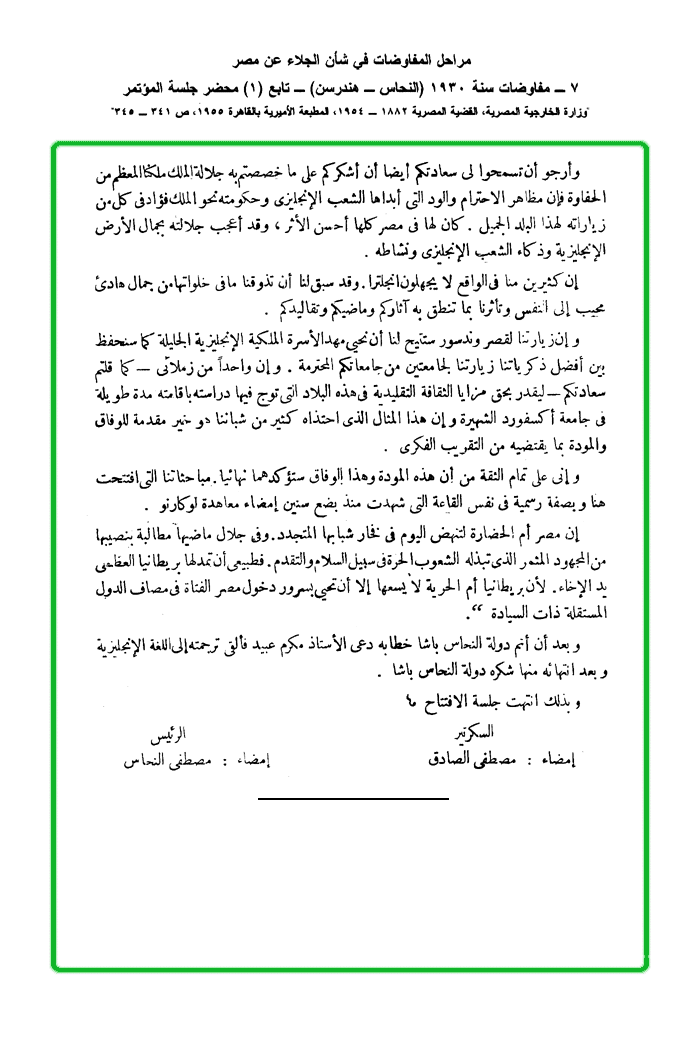 مراحل المفاوضات في شأن الجلاء عن مصر
٧ – مفاوضات سنة ١٩٣٠ (النحاس – هندرسن) – تابع (١) محضر جلسة المؤتمر
"وزارة الخارجية المصرية، القضية المصرية ١٨٨٢ – ١٩٥٤، المطبعة الأميرية بالقاهرة ١٩٥٥، ص ٣٤١ – ٣٤٥"
وأرجو أن تسمحوا لى سعادتكم أيضا أن أشكركم على ما خصصتم به جلالة الملك ملكنا المعظم من
الحفاوة فإن مظاهر الاحترام والود التى أبداها الشعب الإنجليزى وحكومته نحو الملك فؤاد فى كل من
زياراته لهذا البلد الجميل . كان لها فى مصر كلها أحسن الأثر ، وقد أعجب جلالته بجمال الأرض
الإنجليزية وذكاء الشعب الإنجليزى ونشاطه .
إن كثيرين منا فى الواقع لا يجهلون انجلترا . وقد سبق لنا أن تذوقنا ما فى خلواتها من جمال هادئ
محبب إلى النفس وتأثرنا بما تنطق به آثاركم وماضيكم وتقاليدكم .
و إن زيارتنا لقصر وندسور ستتيح لنا أن نحيى مهد الأسرة الملكية الإنجليزية الجليلة كما سنحفظ
بين أفضل ذكرياتنا زيارتنا لجامعتين من جامعاتكم المحترمة . و إن واحداً من زملائى – كما قلتم
سعادتكم – ليقدر بحق مزايا الثقافة التقليدية فى هذه البلاد التى توج فيها دراسته باقامته مدة طويلة
فى جامعة أكسفورد الشهيرة و إن هذا المثال الذى احتذاه كثير من شباننا هو خير مقدمة للوفاق
والمودة بما يقتضيه من التقريب الفكرى .
و إنى على تمام الثقة من أن هذه المودة وهذا الوفاق ستؤكدهما نهائيا . مباحثاتنا التى افتتحت
هنا وبصفة رسمية فى نفس القاعة التى شهدت منذ بضع سنين إمضاء معاهدة لوكارنو .
إن مصر أم الحضارة لتنهض اليوم فى فخار شبابها المتجدد . وفى جلال ماضيها مطالبة بنصيبها
من المجهود المثمر الذى تبذله الشعوب الحرة فى سبيل السلام والتقدم . فطبيعى أن تمد لها بريطانيا العظمى
يد الإخاء . لأن بريطانيا أم الحرية لا يسعها إلا أن تحيى بسرور دخول مصر الفتاة فى مصاف الدول
المستقلة ذات السيادة “ .
و بعد أن أتم دولة النحاس باشا خطابه دعى الأستاذ مكرم عبيد فألقى ترجمته إلى اللغة الإنجليزية
و بعد انتهائه منها شكره دولة النحاس باشا .
و بذلك انتهت جلسة الافتتاح
السكرتير الرئيس
إمضاء : مصطفى الصادق إمضاء : مصطفى النحاس